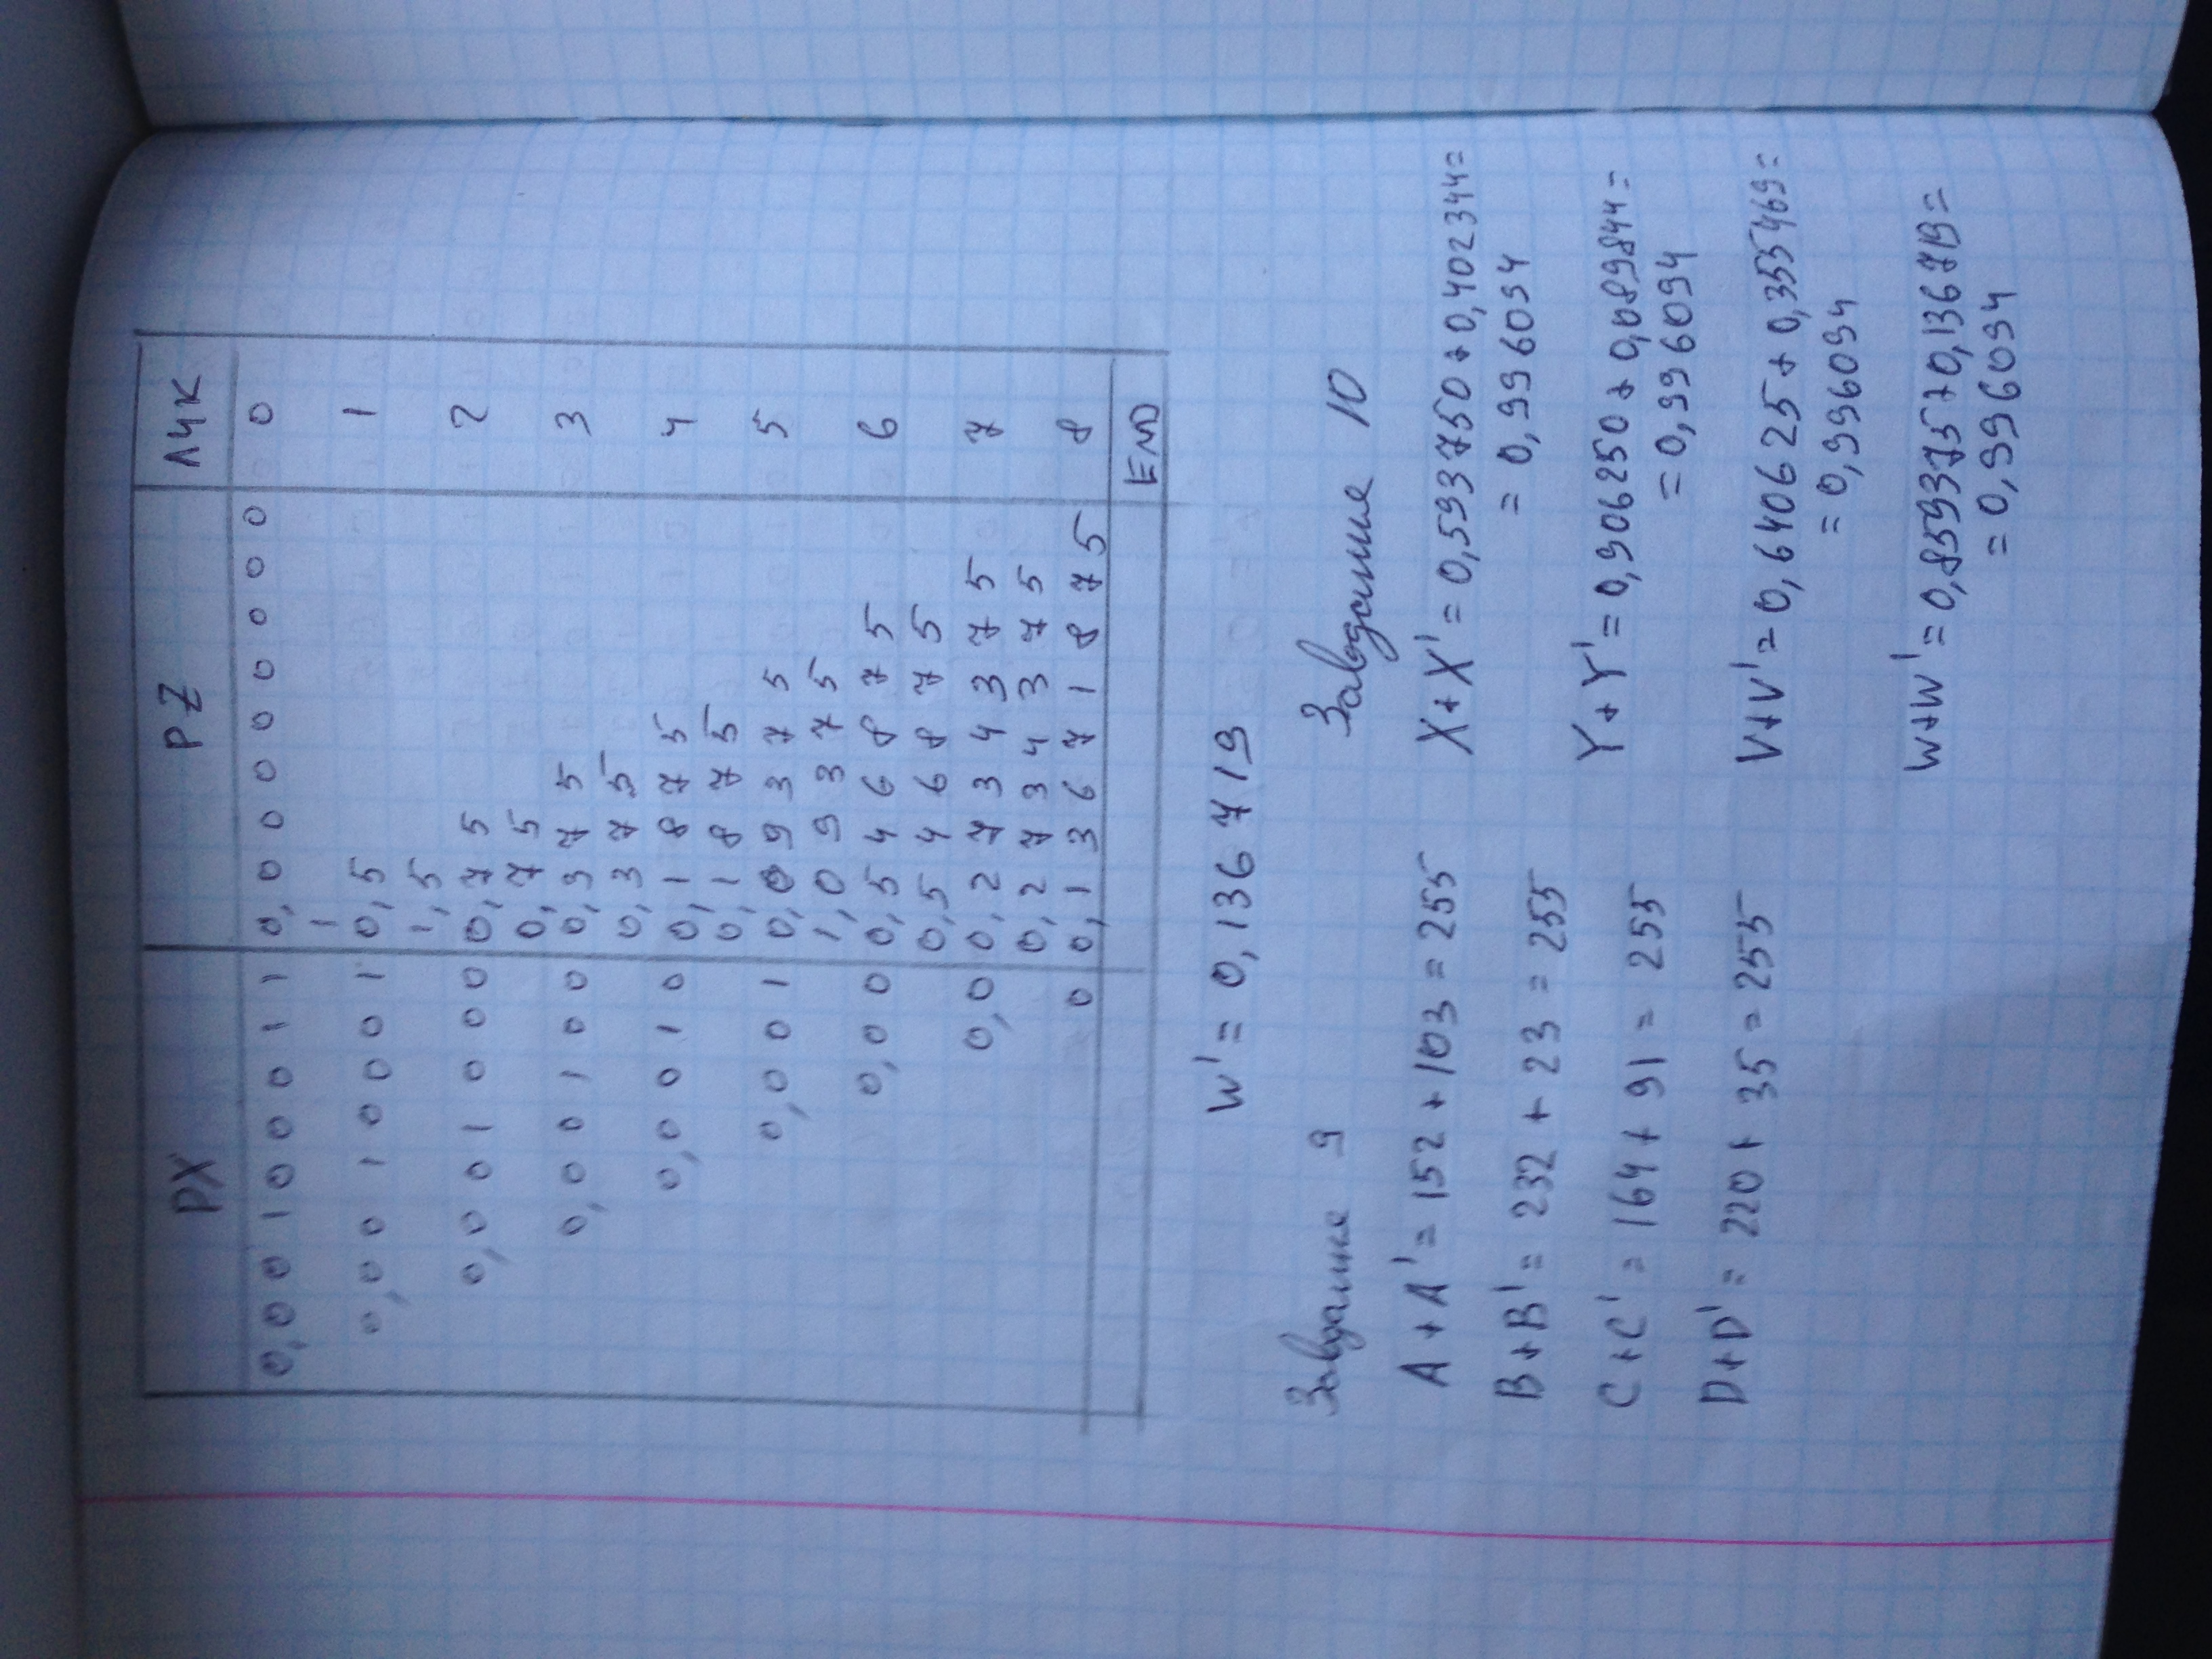 РХ PZ ЛЧК
0,00100011 0,00000000 0
1
0,0010001 0,5 1
1,5
0,001000 0,75 2
0,75
0,00100 0,375 3
0,375
0,0010 0,1875 4
0,1875
0,001 0,09375 5
1,09375
0,00 0,546875 6
0,546875
0,0 0,2734375 7
0,2734375
0 0,13671875 8
END
W' = 0,136719
Завдання 9
A + A' = 152 + 103 = 255
B + B' = 232 + 23 = 255
C + C' = 164 + 91 = 255
D + D' = 220 + 35 = 255
Завдання 10
X + X' = 0,593750 + 0,402344 =
= 0,996094
Y + Y' = 0,906250 + 0,089844 =
= 0,996094
V + V' = 0,640625 + 0,355469 =
= 0,996094
W + W' = 0,859375 + 0,136719 =
= 0,996094